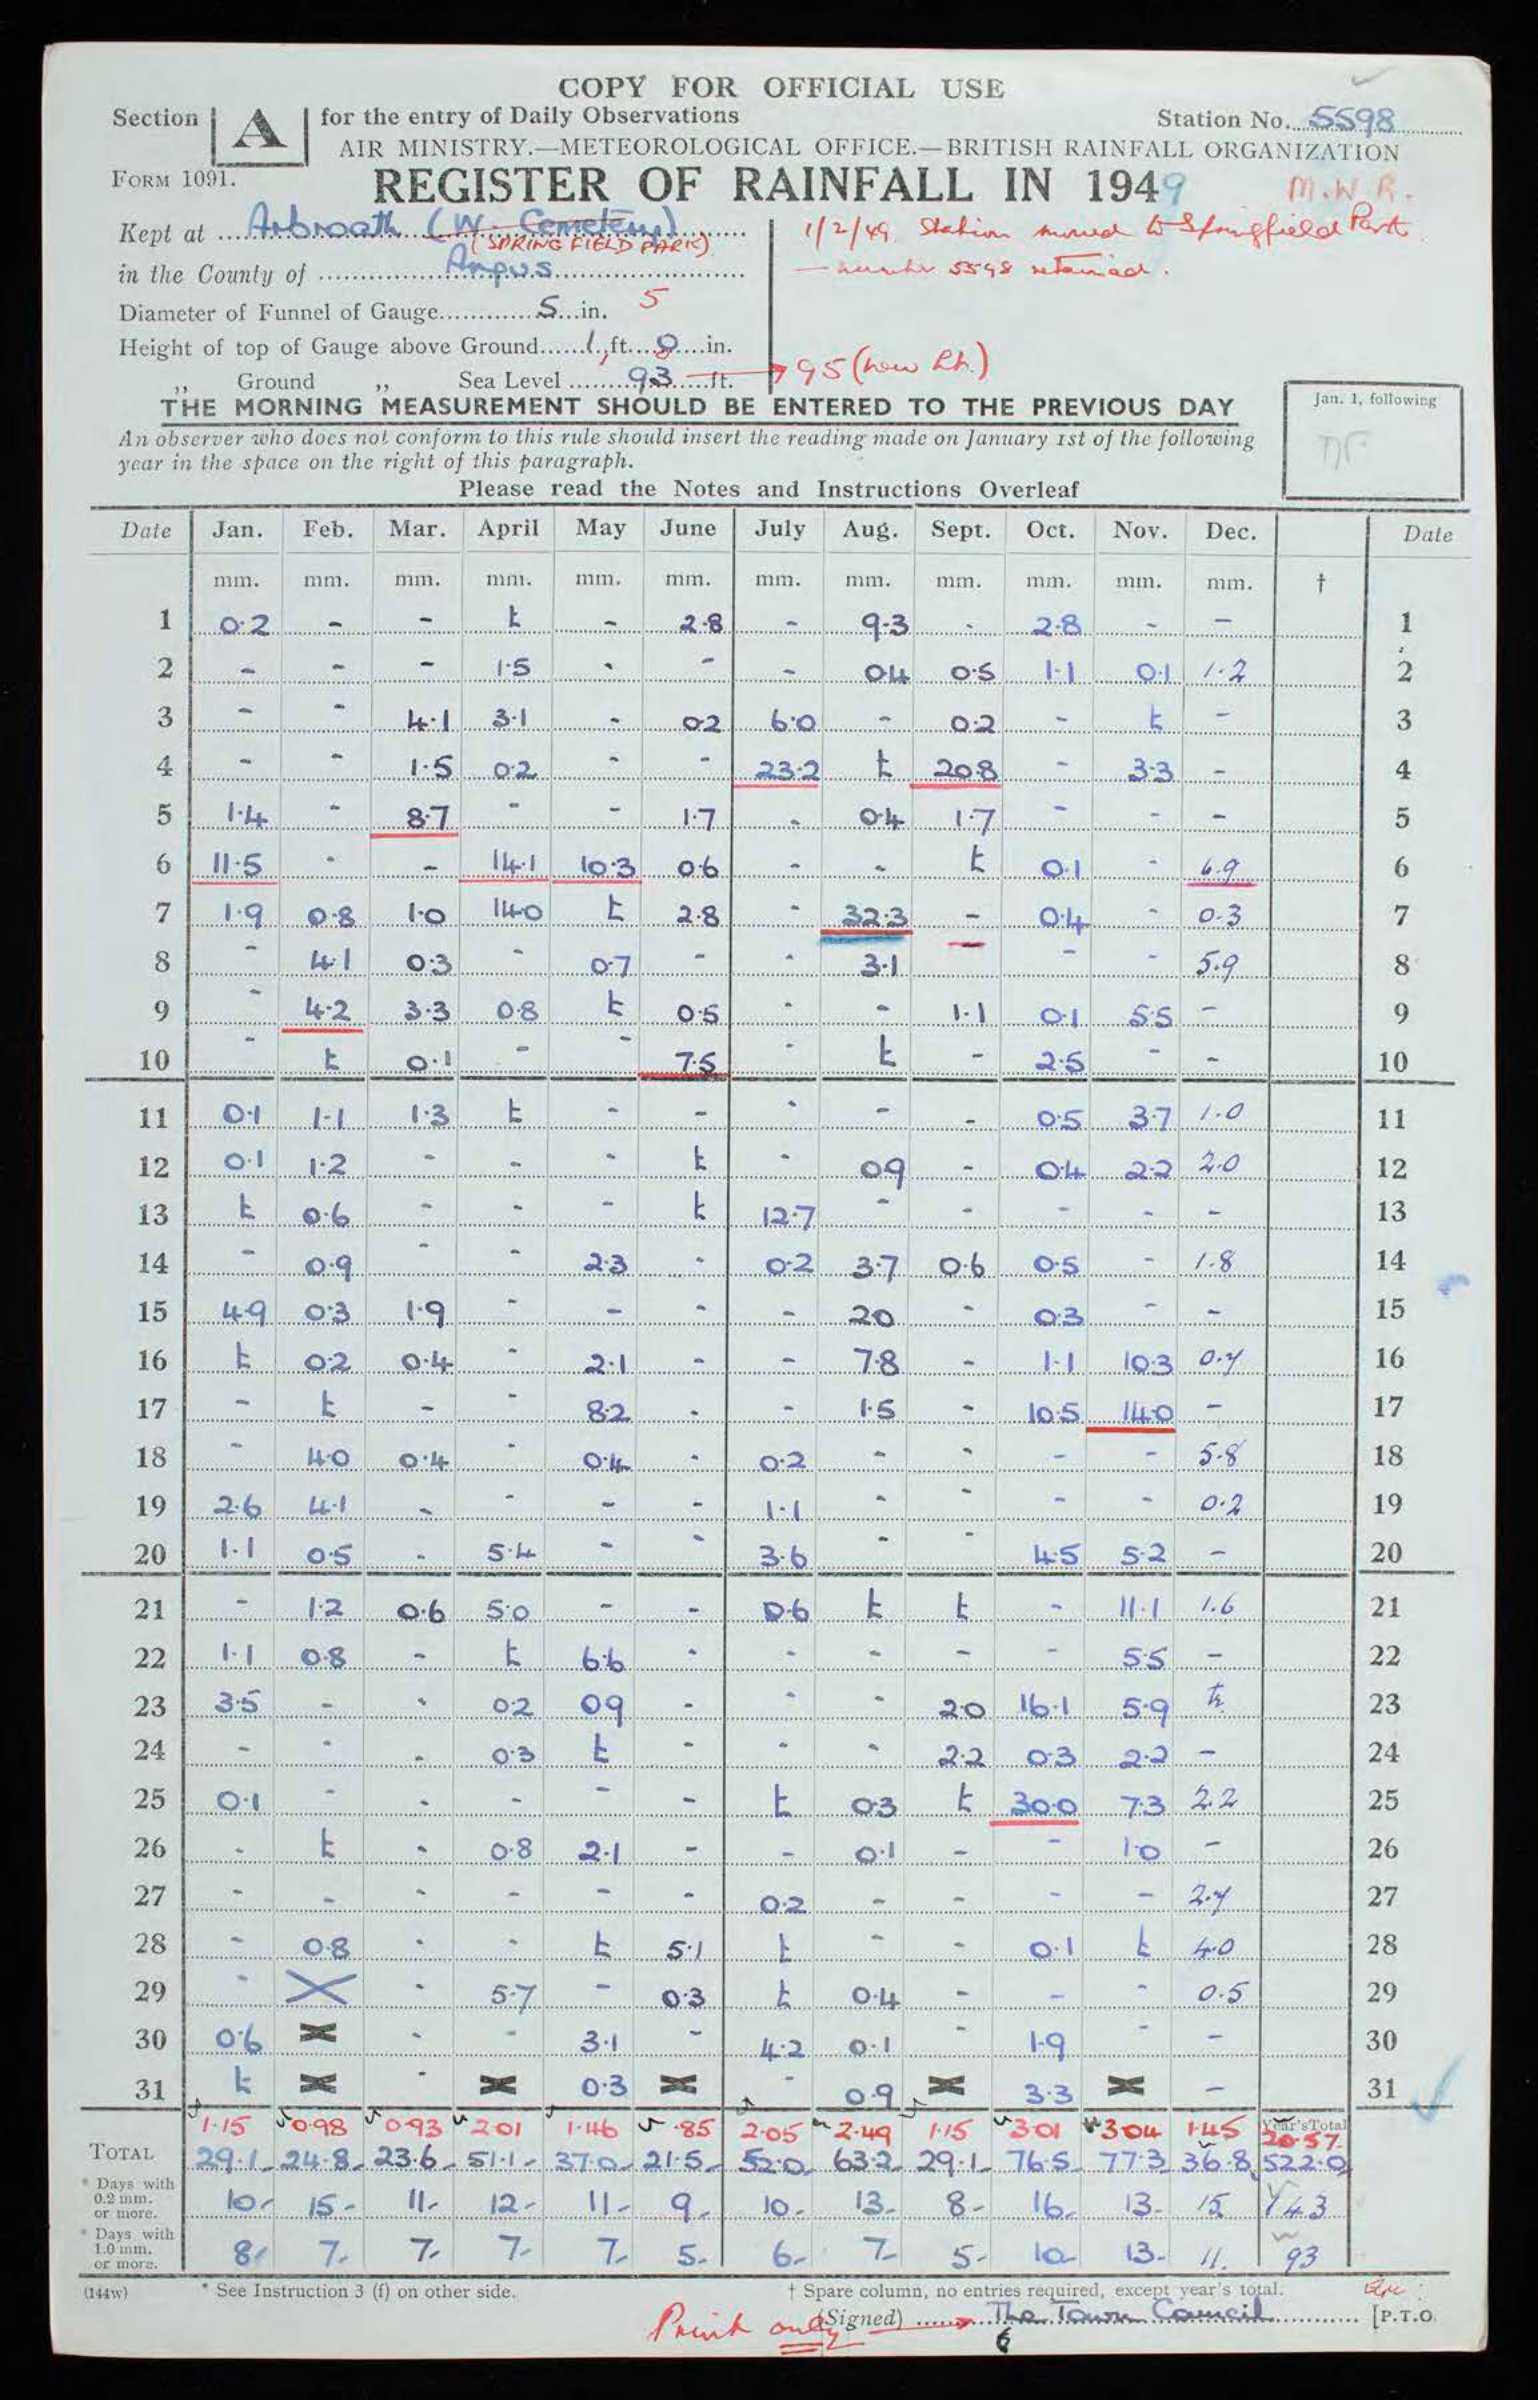 COPY FOR OFFICIAL USE
Section A for the entry of Daily Observations Station No. 5598
AIR MINISTRY.—METEOROLOGICAL OFFICE.—BRITISH RAINFALL ORGANIZATION
FORM 1091.
REGISTER OF RAINFALL IN 1949 M.W.R.
Kept at Arbroath (W. Cemetery) 1/2/49 Station moved to Springfield Park
(SPRINGFIELD PARK) — number 5598 retained.
in the County of Angus
Diameter of Funnel of Gauge 5 in. 5
Height of top of Gauge above Ground 1 ft. 0 in.
„ Ground „ Sea Level 93 ft. 95 (new ht.)
THE MORNING MEASUREMENT SHOULD BE ENTERED TO THE PREVIOUS DAY
Jan. 1, following
An observer who does not conform to this rule should insert the reading made on January 1st of the following
year in the space on the right of this paragraph.
Please read the Notes and Instructions Overleaf
Date Jan. Feb. Mar. April May June July Aug. Sept. Oct. Nov. Dec. Date
mm. mm. mm. mm. mm. mm. mm. mm. mm. mm. mm. mm. †
1 0.2 - - t - 2.8 - 9.3 - 2.8 - - 1
2 - - - 1.5 - - - 0.4 0.5 1.1 0.1 1.2 2
3 - - 4.1 3.1 - 0.2 6.0 - 0.2 - t - 3
4 - - 1.5 0.2 - - 23.2 t 20.8 - 3.3 - 4
5 1.4 - 8.7 - - 1.7 - 0.4 1.7 - - - 5
6 11.5 - - 14.1 10.3 0.6 - - t 0.1 - 6.9 6
7 1.9 0.8 1.0 14.0 t 2.8 - 32.3 - 0.4 - 0.3 7
8 - 4.1 0.3 - 0.7 - - 3.1 - - 5.9 8
9 - 4.2 3.3 0.8 t 0.5 - - 1.1 0.1 5.5 - 9
10 - t 0.1 - - 7.5 - t - 2.5 - - 10
11 0.1 1.1 1.3 t - - - - - 0.5 3.7 1.0 11
12 0.1 1.2 - - - t - 0.9 - 0.4 2.2 2.0 12
13 t 0.6 - - - t 12.7 - - - - - 13
14 - 0.9 - - 2.3 - 0.2 3.7 0.6 0.5 - 1.8 14
15 4.9 0.3 1.9 - - - - 2.0 - 0.3 - - 15
16 t 0.2 0.4 - 2.1 - - 7.8 - 1.1 10.3 0.7 16
17 - t - - 8.2 - - 1.5 - 10.5 14.0 - 17
18 - 4.0 0.4 - 0.4 - 0.2 - - - - 5.8 18
19 2.6 4.1 - - - - 1.1 - - - - 0.2 19
20 1.1 0.5 - 5.4 - - 3.6 - - 4.5 5.2 - 20
21 - 1.2 0.6 5.0 - - 0.6 t t - 11.1 1.6 21
22 1.1 0.8 - t 6.6 - - - - - 5.5 - 22
23 3.5 - - 0.2 0.9 - - - 2.0 16.1 5.9 tr 23
24 - - - 0.3 t - - - 2.2 0.3 2.2 - 24
25 0.1 - - - - - t 0.3 t 30.0 7.3 2.2 25
26 - t - 0.8 2.1 - - 0.1 - - 1.0 - 26
27 - - - - - - 0.2 - - - - 2.7 27
28 - 0.8 - - t 5.1 t - - 0.1 t 4.0 28
29 - X - 5.7 - 0.3 t 0.4 - - - 0.5 29
30 0.6 X - - 3.1 - 4.2 0.1 - 1.9 - - 30
31 t X - X 0.3 X - 0.9 X 3.3 X - 31
1.15 0.98 0.93 2.01 1.46 .85 2.05 2.49 1.15 3.01 3.04 1.45 Year's Total 20.57
TOTAL 29.1 24.8 23.6 51.1 37.0 21.5 52.0 63.2 29.1 76.5 77.3 36.8 522.0
* Days with 0.2 mm. or more. 10 15 11 12 11 9 10 13 8 16 13 15 143
* Days with 1.0 mm. or more. 8 7 7 7 7 5 6 7 5 10 13 11. 93
(144w) * See Instruction 3 (f) on other side. † Spare column, no entries required, except year's total.
Print only (Signed) The Town Council [P.T.O.
6